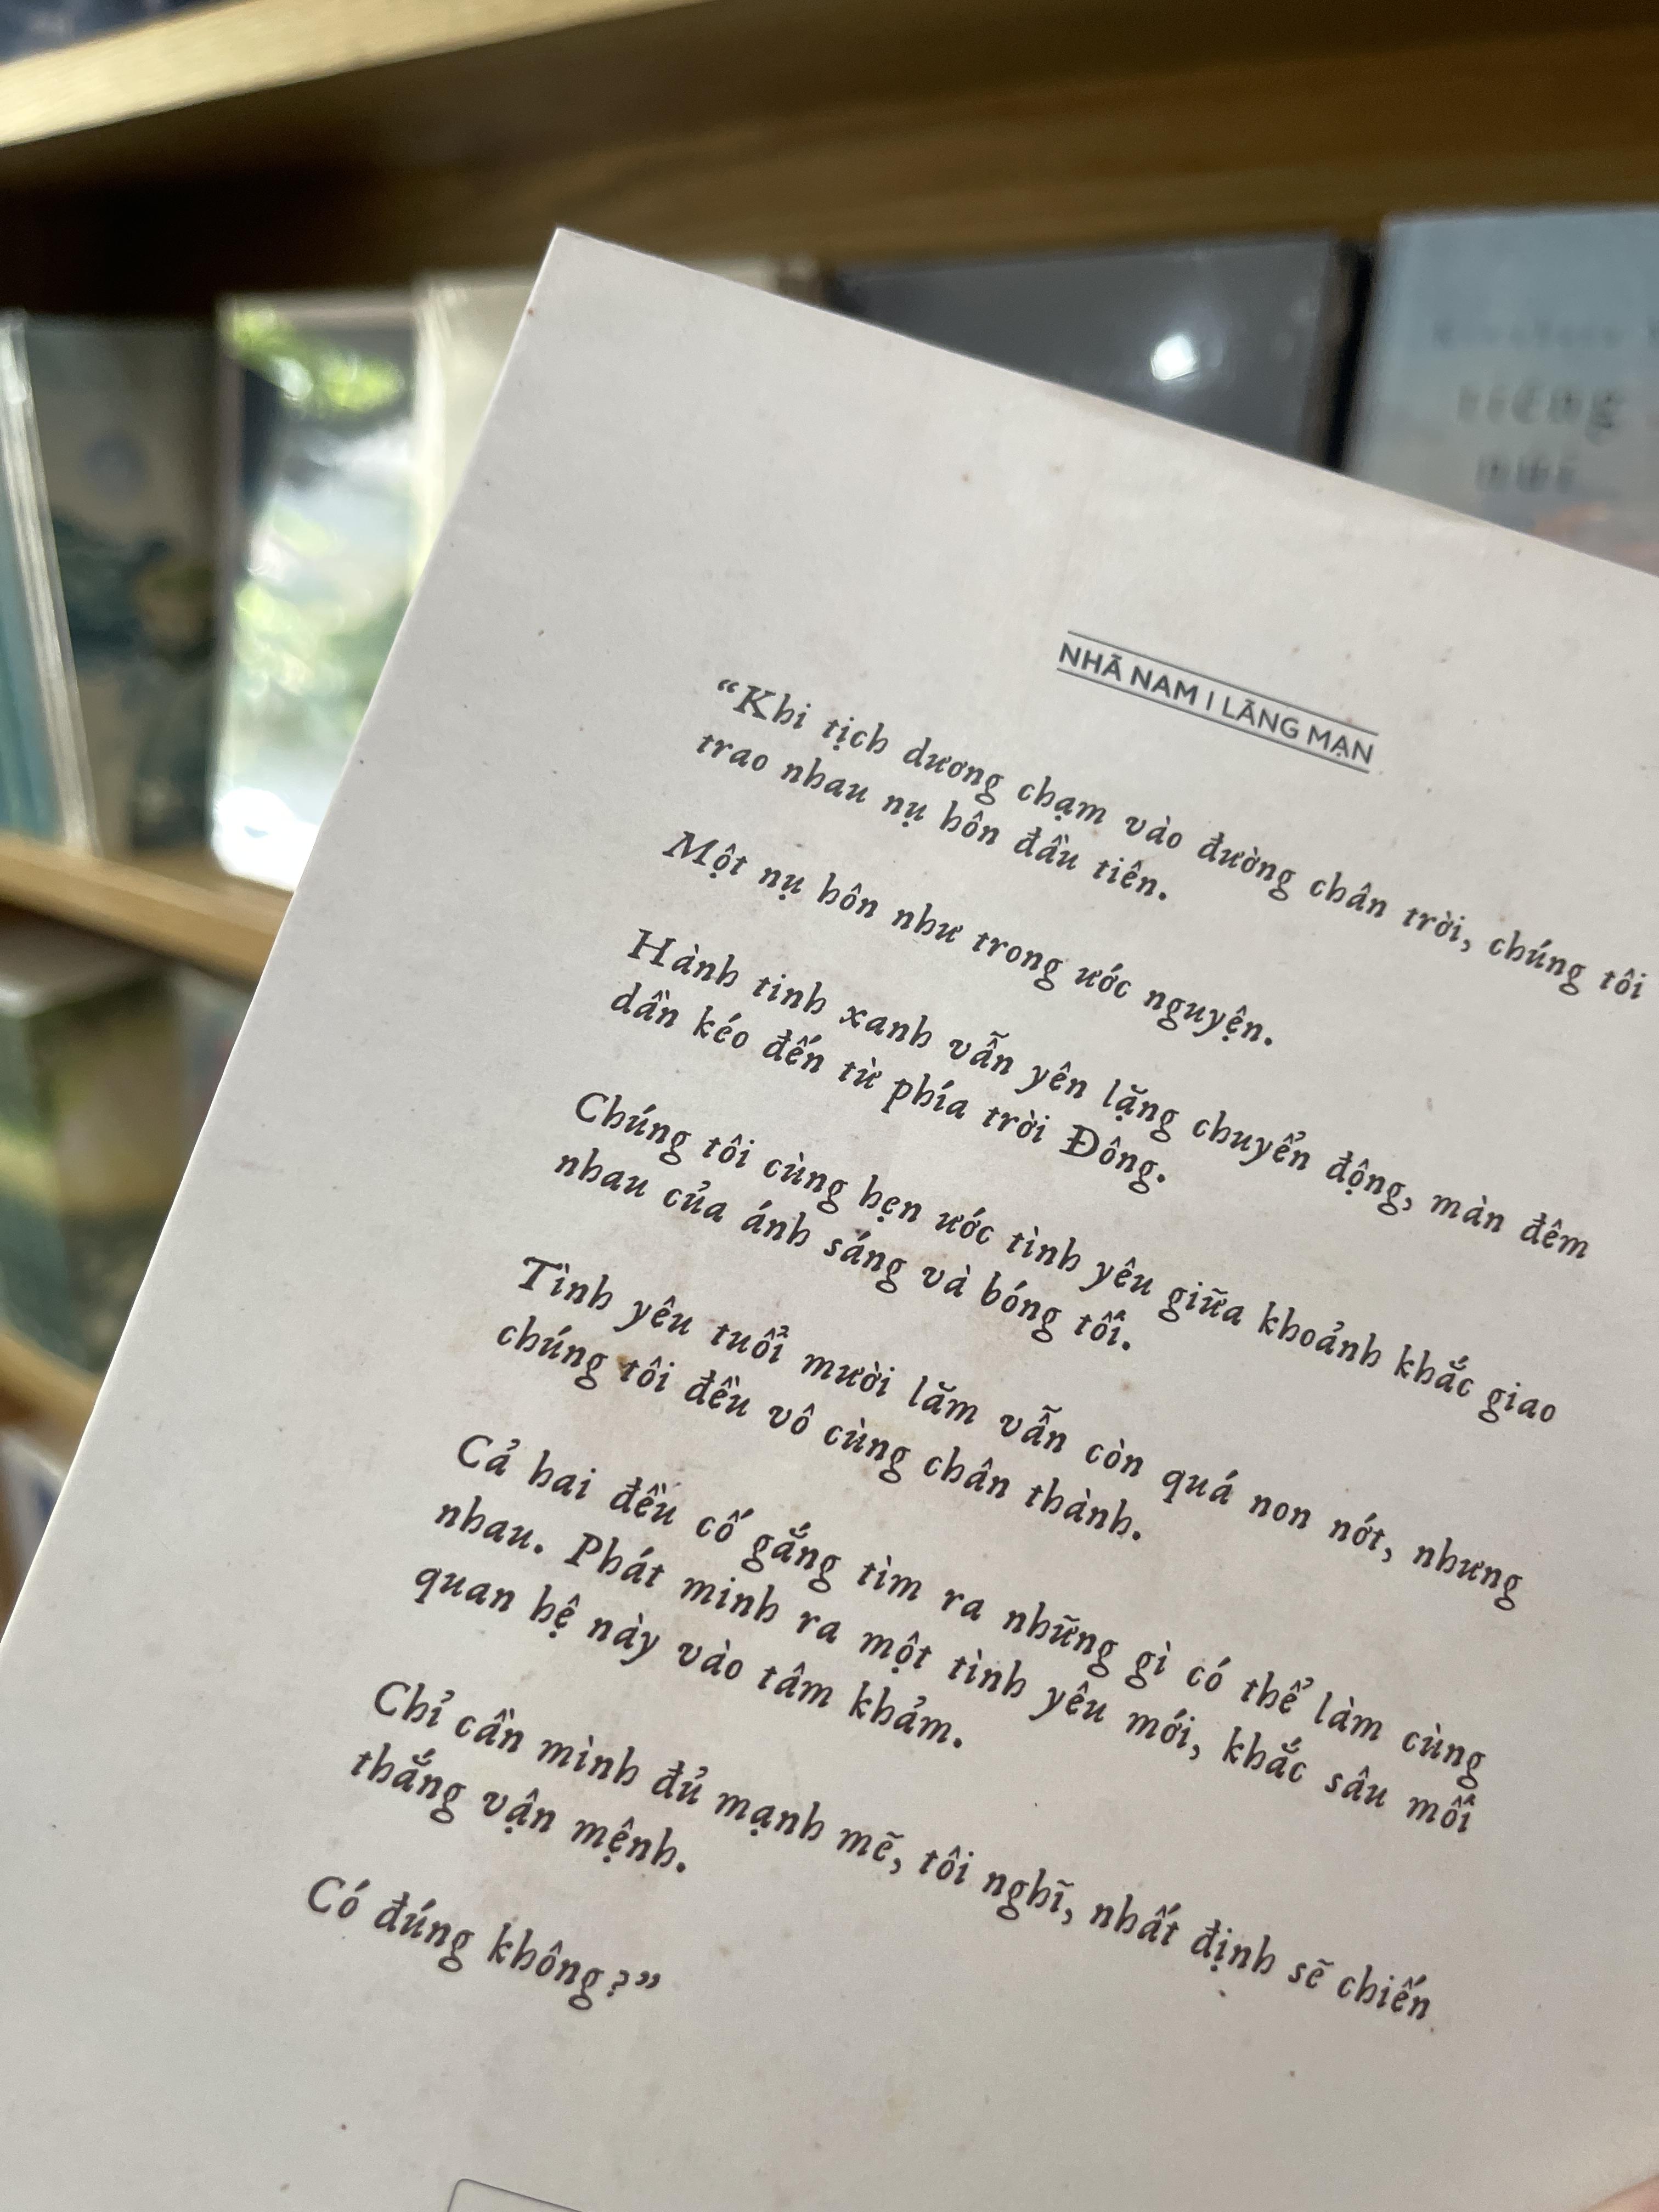 NHÃ NAM | LÃNG MẠN
“Khi tịch dương chạm vào đường chân trời, chúng tôi
trao nhau nụ hôn đầu tiên.
Một nụ hôn như trong ước nguyện.
Hành tinh xanh vẫn yên lặng chuyển động, màn đêm
dần kéo đến từ phía trời Đông.
Chúng tôi cùng hẹn ước tình yêu giữa khoảnh khắc giao
nhau của ánh sáng và bóng tối.
Tình yêu tuổi mười lăm vẫn còn quá non nớt, nhưng
chúng tôi đều vô cùng chân thành.
Cả hai đều cố gắng tìm ra những gì có thể làm cùng
nhau. Phát minh ra một tình yêu mới, khắc sâu mối
quan hệ này vào tâm khảm.
Chỉ cần mình đủ mạnh mẽ, tôi nghĩ, nhất định sẽ chiến
thắng vận mệnh.
Có đúng không?”
tiếng
núi